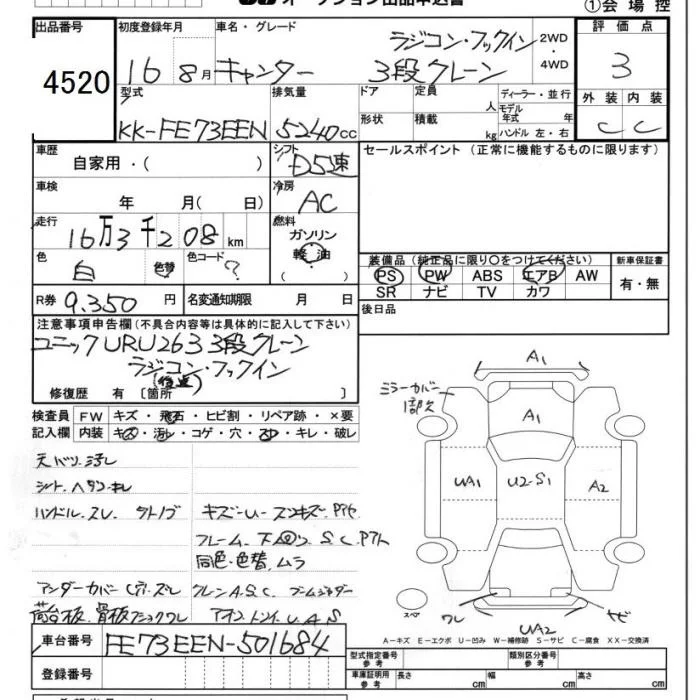 オークション出品申込書
①会場控
出品番号
4520
初度登録年月
16 8月
車名・グレード
キャンター
ラジコン・フックイン
3段クレーン
2WD
・
4WD
評価点
3
外装 内装
C C
型式
KK-FE73EEN
排気量
5240cc
ドア
形状
定員
人
積載
kg
ディーラー・並行
モデル
年式 年
ハンドル 左・右
車歴
自家用・( )
シフト
D5速
セールスポイント(正常に機能するものに限ります)
車検
年 月( 日)
冷房
AC
走行
16万3千208km
燃料
ガソリン
軽油
( )
色
白
色替
色コード
?
装備品(純正品に限り○をつけてください)
PS PW ABS エアB AW
SR ナビ TV カワ
新車保証書
有・無
R券 9,350 円
名変通知期限 月 日
後日品
注意事項申告欄(不具合内容等は具体的に記入して下さい)
ユニックURU263 3段クレーン
ラジコン・フックイン
修復歴 有〔箇所 〕
検査員
記入欄
FW キズ・飛石・ヒビ割・リペア跡・×要
内装 キズ・汚れ・コゲ・穴・スレ・キレ・破レ
天バリ汚レ
シート、ヘタリ・キレ
ハンドル、スレ、
フレーム、下回り S、C、
同色・色替、ムラ
アンダーカバー
クレーンA、S、C、
荷台板、骨板
U、A、S
ミラーカバー
A1
A1
UA1
U2-S1
A2
スペア
ワレ
サビ
UA2
A-キズ E-エクボ U-凹み W-補修跡 S-サビ C-腐食 XX-交換済
車台番号 FE73EEN-501684
登録番号
型式指定番号
参考
類別区分番号
参考
車庫証明用
参考
長さ cm 幅 cm 高さ cm